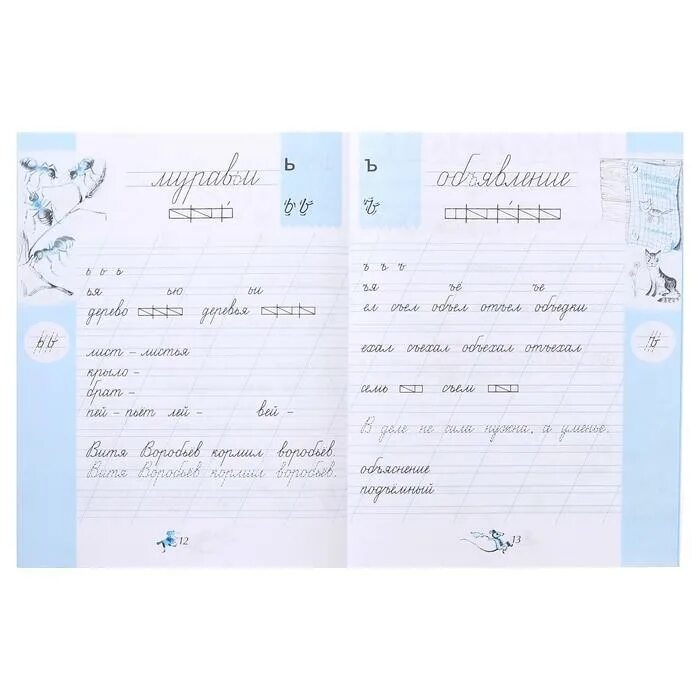 муравьи
Ь
ь ь ь
ья ью ьи
дерево деревья
лист – листья
крыло –
брат –
пей – пьёт лей – вей –
Витя Воробьёв кормил воробьёв.
Витя Воробьёв кормил воробьёв.
12
Ъ
объявление
ъ ъ ъ
ъя ъё ъе
ел съел объел отъел объедки
ехал съехал объехал отъехал
семь съем
В деле не сила нужна, а уменье.
объяснение
подъёмный
13